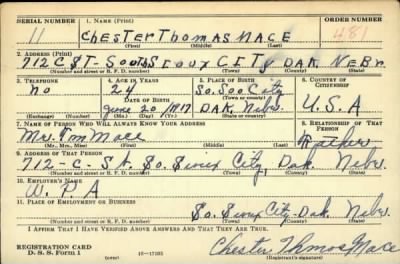 SERIAL NUMBER 1. NAME (Print) ORDER NUMBER
11 Chester Thomas Mace 481
(First) (Middle) (Last)
2. ADDRESS (Print)
712 C ST- South Sioux City DAK Nebr.
(Number and street or R. F. D. number) (Town) (County) (State)
3. TELEPHONE 4. AGE IN YEARS 5. PLACE OF BIRTH 6. COUNTRY OF CITIZENSHIP
no 24 So. Soo City
DATE OF BIRTH (Town or county)
June 20 1917 DAK. Nebr. U.S.A
(Exchange) (Number) (Mo.) (Day) (Yr.) (State or country)
7. NAME OF PERSON WHO WILL ALWAYS KNOW YOUR ADDRESS 8. RELATIONSHIP OF THAT PERSON
Mr. Tom Mace
(Mr., Mrs., Miss) (First) (Middle) (Last)
9. ADDRESS OF THAT PERSON
712 - C - St. So. Sioux City, Dak. Nebr.
(Number and street or R. F. D. number) (Town) (County) (State)
10. EMPLOYER'S NAME
W. P. A
11. PLACE OF EMPLOYMENT OR BUSINESS
So. Sioux City- Dak. Nebr.
(Number and street or R. F. D. number) (Town) (County) (State)
I AFFIRM THAT I HAVE VERIFIED ABOVE ANSWERS AND THAT THEY ARE TRUE.
REGISTRATION CARD
D. S. S. Form 1 (over) Chester Thmos Mace
(Registrant's signature)